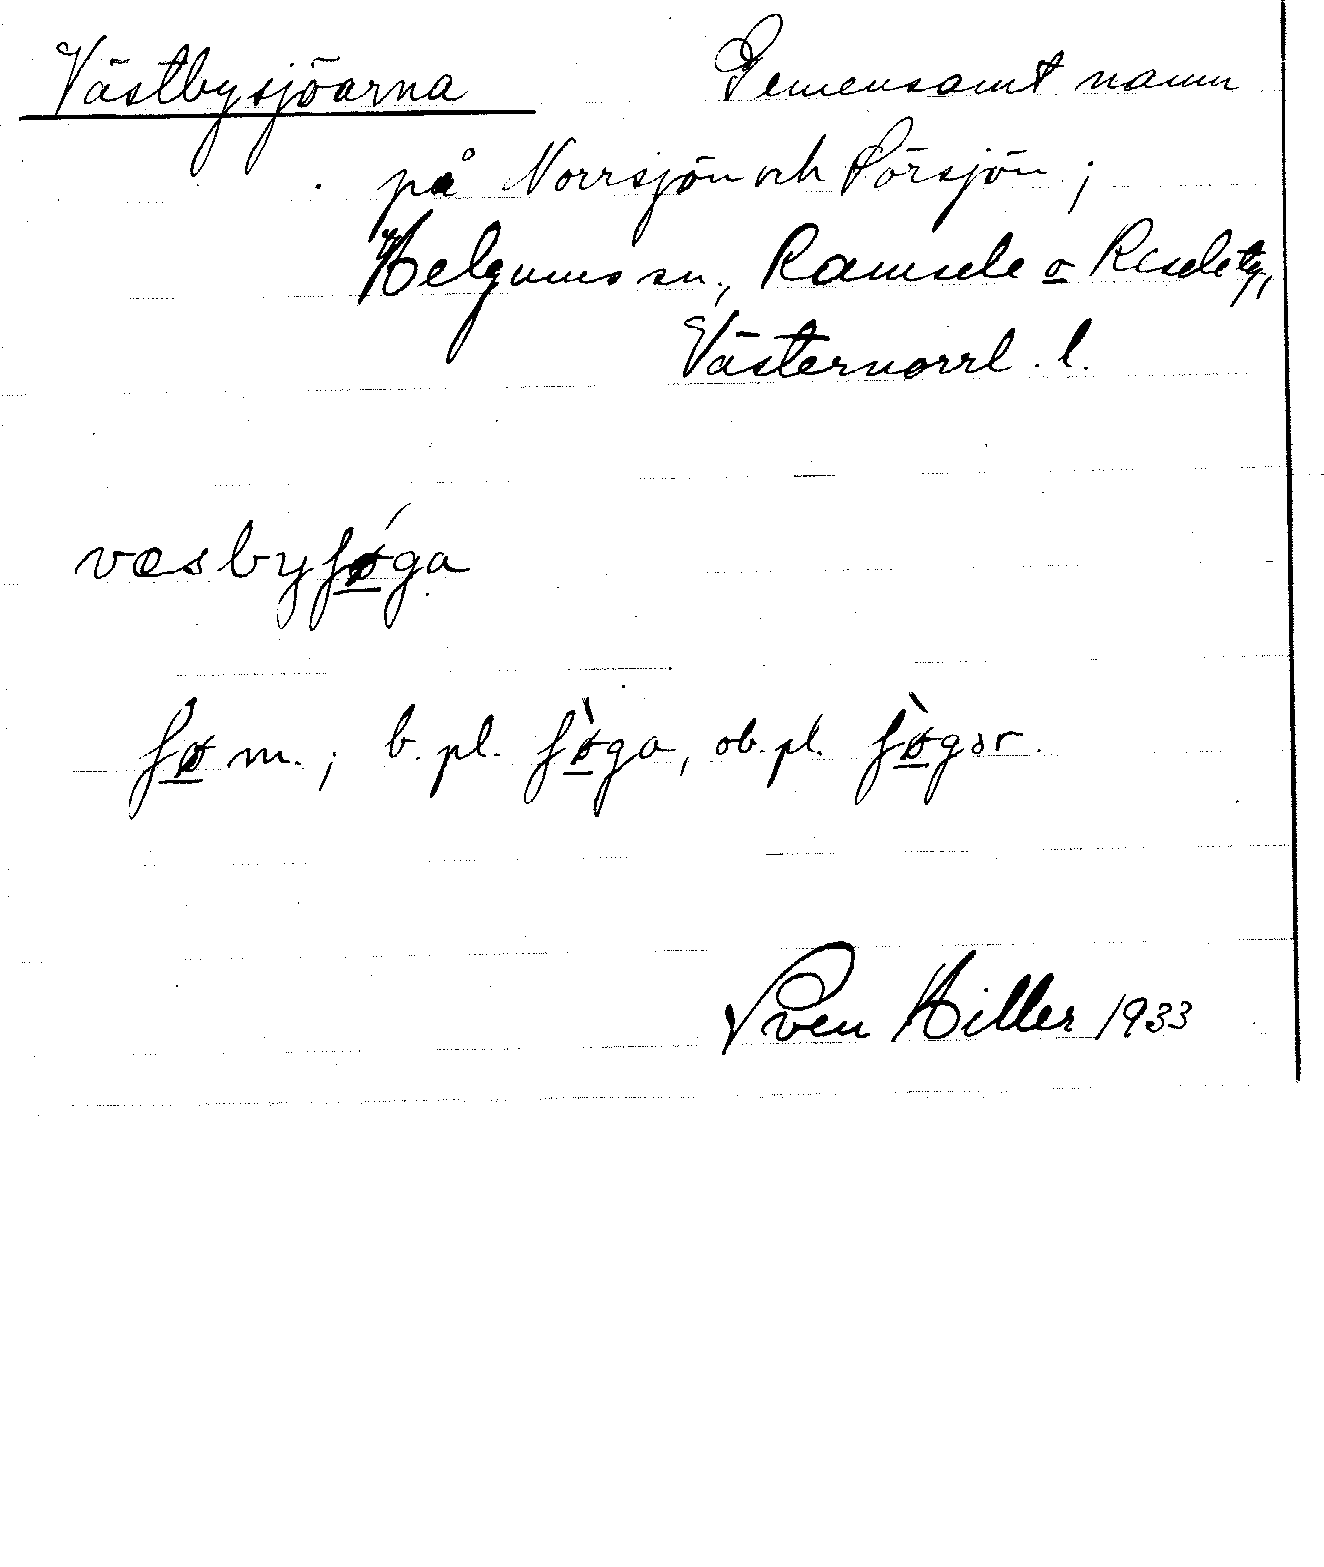 Västbysjöarna Gemensamt namn
på Norrsjön och Sörsjön;
Helgums sn., Ramsele o Resele tg,
Västernorrl. l.
væsbyʃǿga
ʃø m.; b. pl. ʃø̀ga, ob. pl. ʃø̀gər.
Sven Hiller 1933